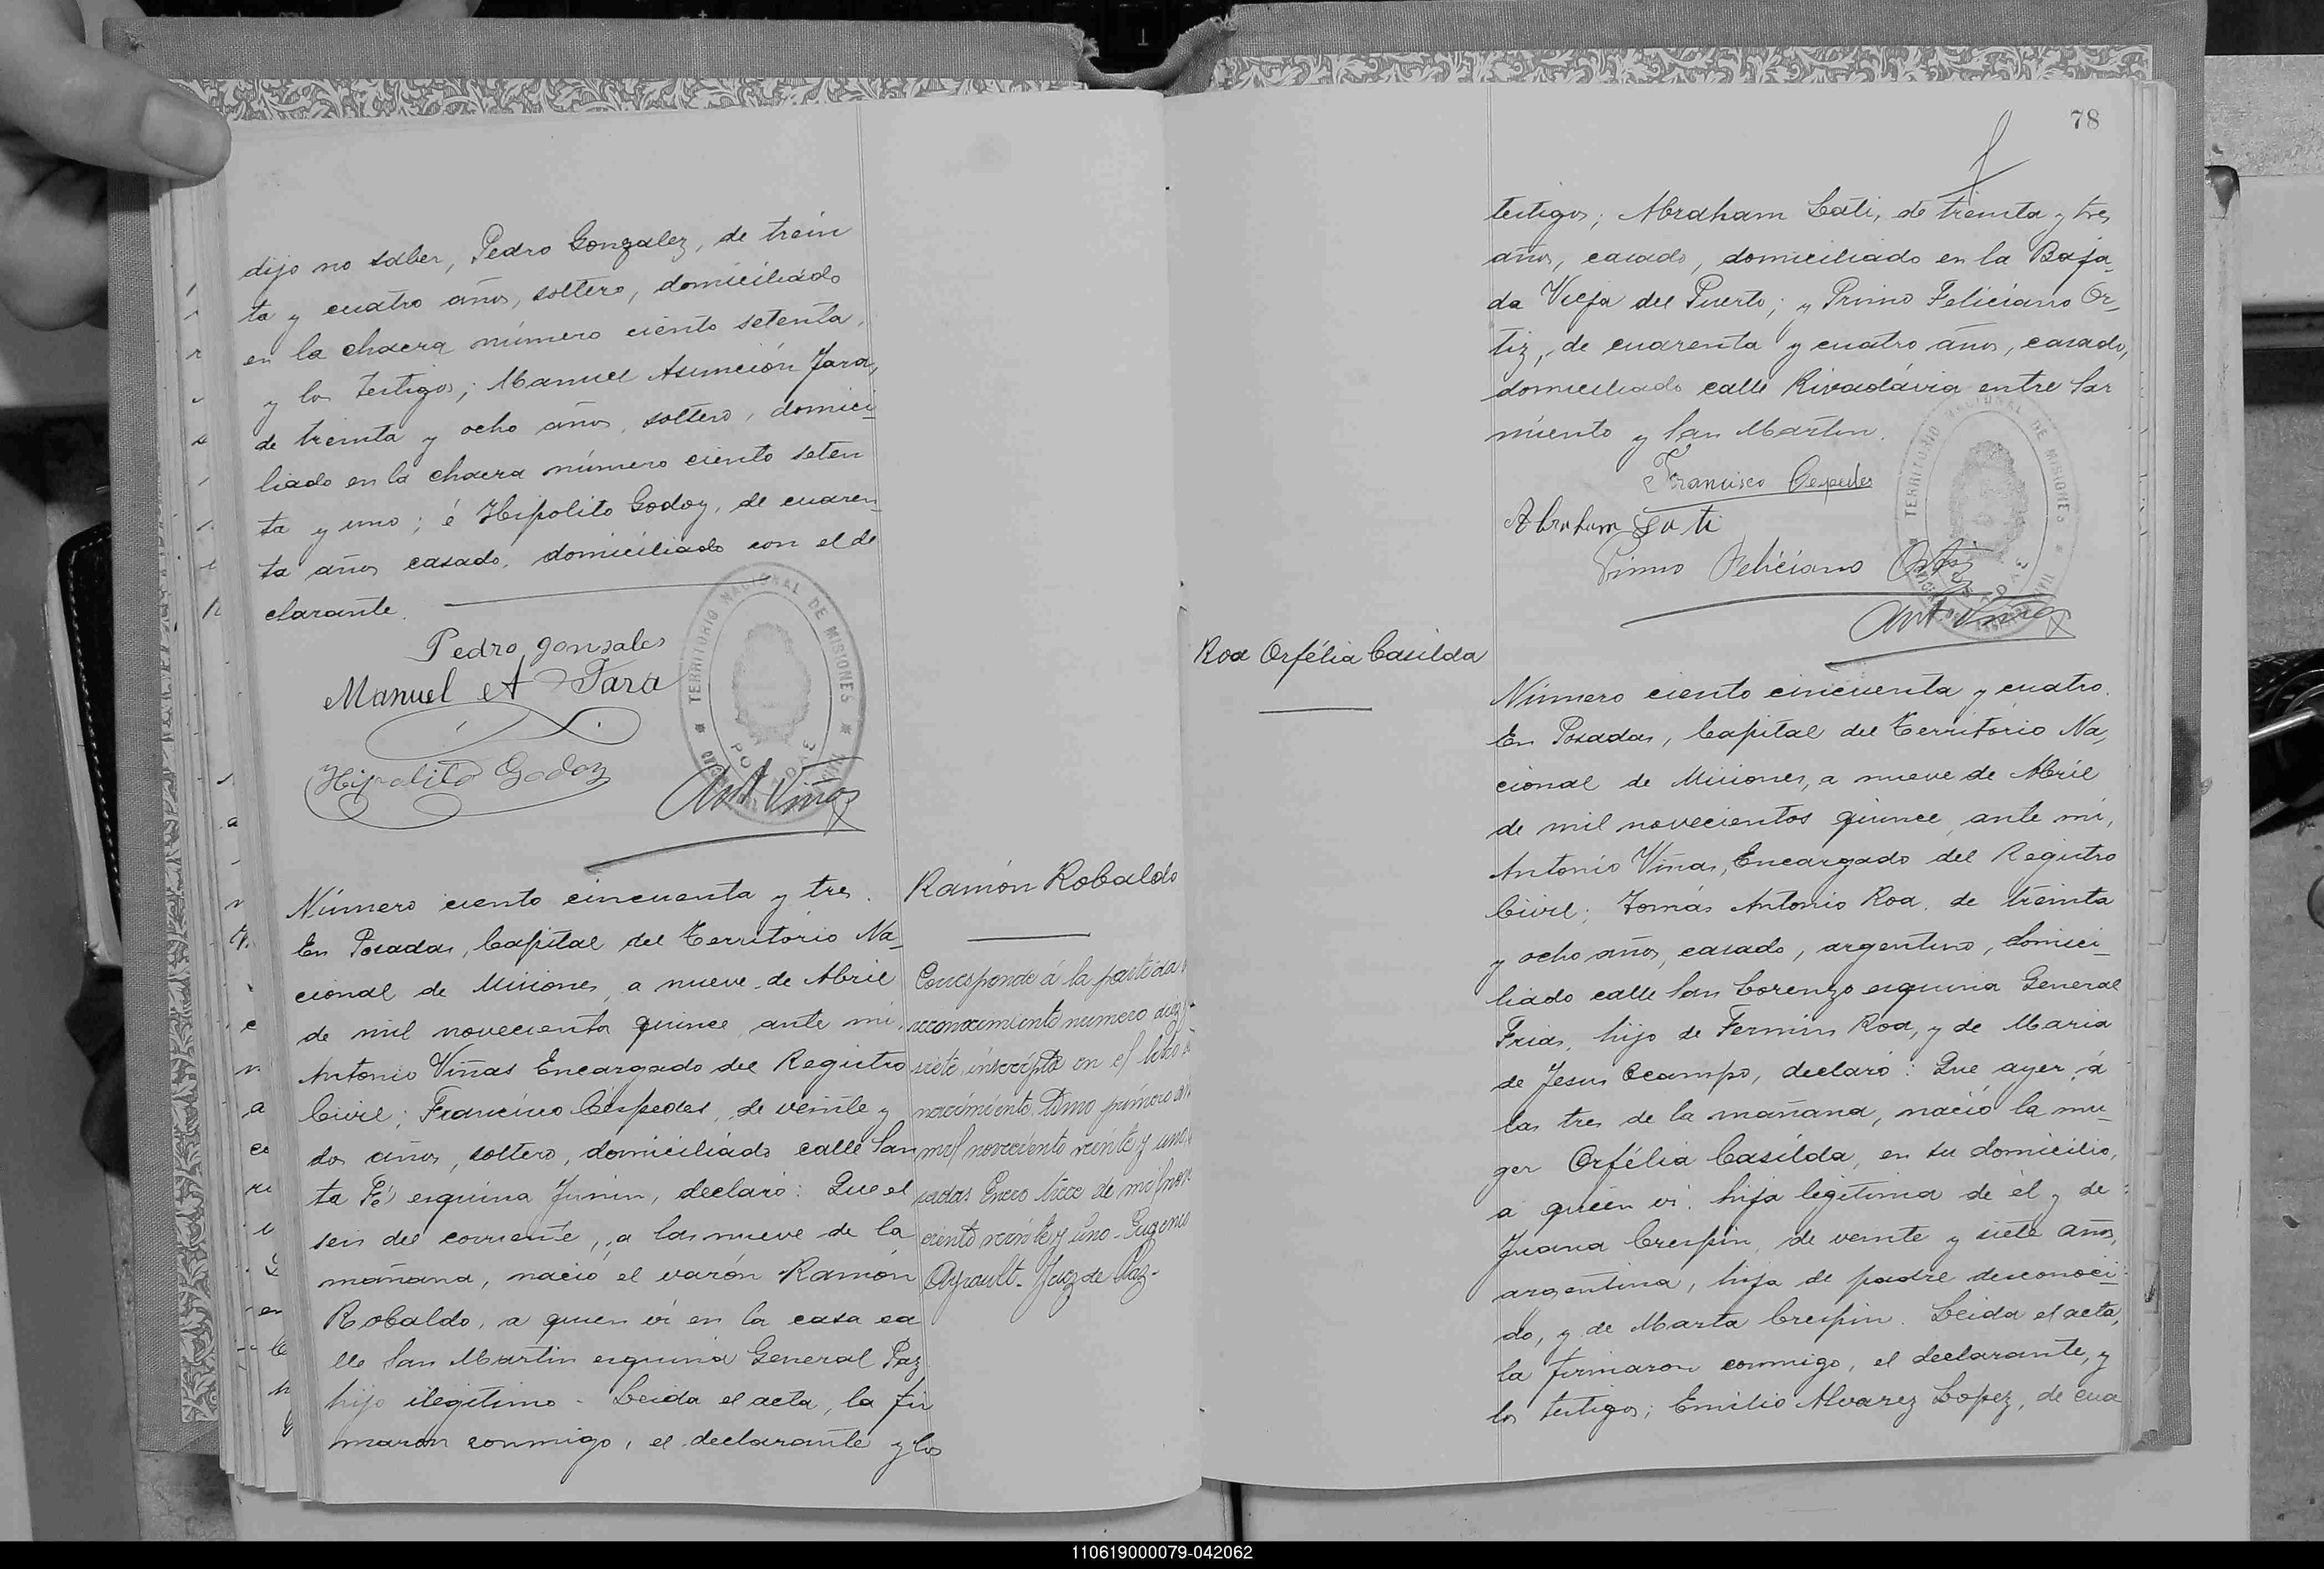 dijo no saber, Pedro Gonzalez, de trein
ta y cuatro años, soltero, domiciliado
en la chacra número ciento setenta,
y los testigos; Manuel Asunción Jara,
de treinta y ocho años, soltero, domici
liado en la chacra número ciento seten
ta y uno; é Hipolito Godoy, de cuaren
ta años casado, domiciliado con el de
clarante.
Pedro gonsales
Manuel A Jara
Hipolito Godoy
TERRITORIO NACIONAL DE MISIONES
POSADAS
Ant Viñas
Número ciento cincuenta y tres.
En Posadas, Capital del Territorio Na_
cional de Misiones, a nueve de Abril
de mil novecientos quince, ante mi,
Antonio Viñas Encargado del Registro
Civil; Francisco Céspedes, de veinte y
dos años, soltero, domiciliado calle San
ta Fé esquina Junin, declaró: Que el
seis del corriente, a las nueve de la
mañana, nació el varón Ramón
Robaldo, a quien vi en la casa ca
lle San Martin esquina General Paz
hijo ilegitimo. Leida el acta, la fir
maron conmigo, el declarante y los
Ramón Robaldo
Corresponde á la partida
reconocimiento numero diez y
siete inscripta en el libro
nacimiento tomo primero
mil noveciento veinte y uno
sadas Enero trece de mil nov
ciento veinte y uno. Eugenio
Ayrault. Juez de Paz.
78
testigos; Abraham Lati, de treinta y tres
años, casado, domiciliado en la Baja_
da Vieja del Puerto; y Primo Feliciano Or_
tiz, de cuarenta y cuatro años, casado,
domiciliado calle Rivadávia entre Sar
miento y San Martin.
Francisco Cespedes
Abraham Lati
Primo Feliciano Ortiz
TERRITORIO NACIONAL DE MISIONES
POSADAS
Ant. Viñas
Roa Orfélia Casilda
Número ciento cincuenta y cuatro.
En Posadas, Capital del Territorio Na,
cional de Misiones, a nueve de Abril
de mil novecientos quince, ante mi,
Antonio Viñas, Encargado del Registro
Civil; Tomás Antonio Roa, de treinta
y ocho años, casado, argentino, domici_
liado calle San Lorenzo esquina General
Frias, hijo de Fermin Roa, y de Maria
de Jesus Ocampo, declaró: Que ayer, á
las tres de la mañana, nació la mu
ger Orfélia Casilda, en su domicilio,
a quien vi. hija legítima de él y de
Juana Crespin, de veinte y siete años,
argentina, hija de padre desconoci
do, y de Marta Crespin. Leida el acta,
la firmaron conmigo, el declarante, y
los testigos; Emilio Alvarez Lopez, de cua
110619000079-042062